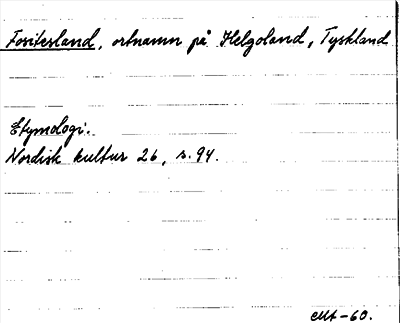 Fositesland, ortnamn på Helgoland, Tyskland
Etymologi:
Nordisk kultur 26, s. 94.
-60.